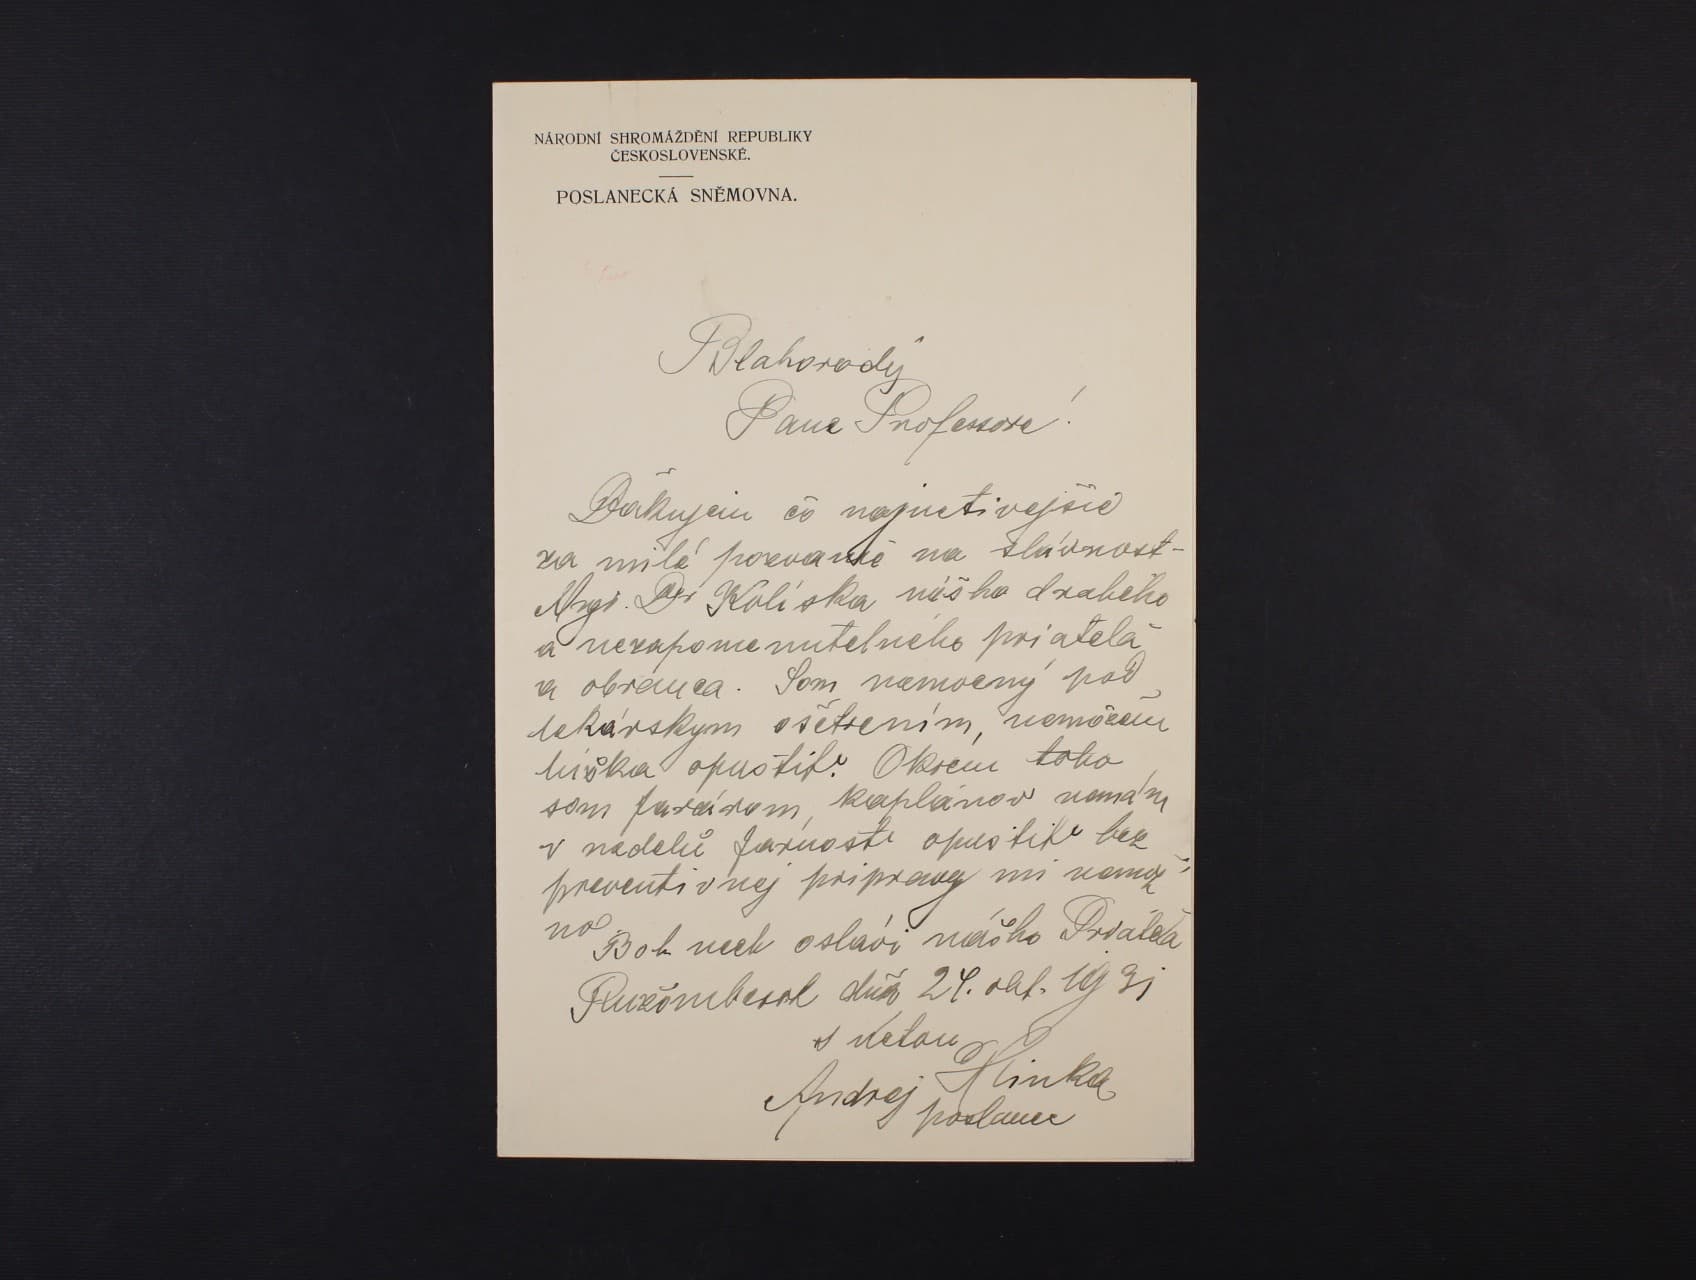 NÁRODNÍ SHROMÁŽDĚNÍ REPUBLIKY
ČESKOSLOVENSKÉ.
POSLANECKÁ SNĚMOVNA.
Blahorodý
Pane Professore!
Ďakujem čo najuctivejšie
za milé pozvanie na slávnosť
Msgr. Dr Kolíska nášho drahého
a nezapomenutelného priatelá
a obrancu. Som nemocný pod
lekárskym ošetrením, nemôžem
lúžka opustiť. Okrem toho
som farárom, kaplánov nemám
v nedelu farnosť opustiť bez
preventivnej pripravy mi nemož
no
Boh nech oslávi nášho Priatela
Ružomberok dňa 24. okt. 1931
s úctou
Andrej Hlinka
poslanec